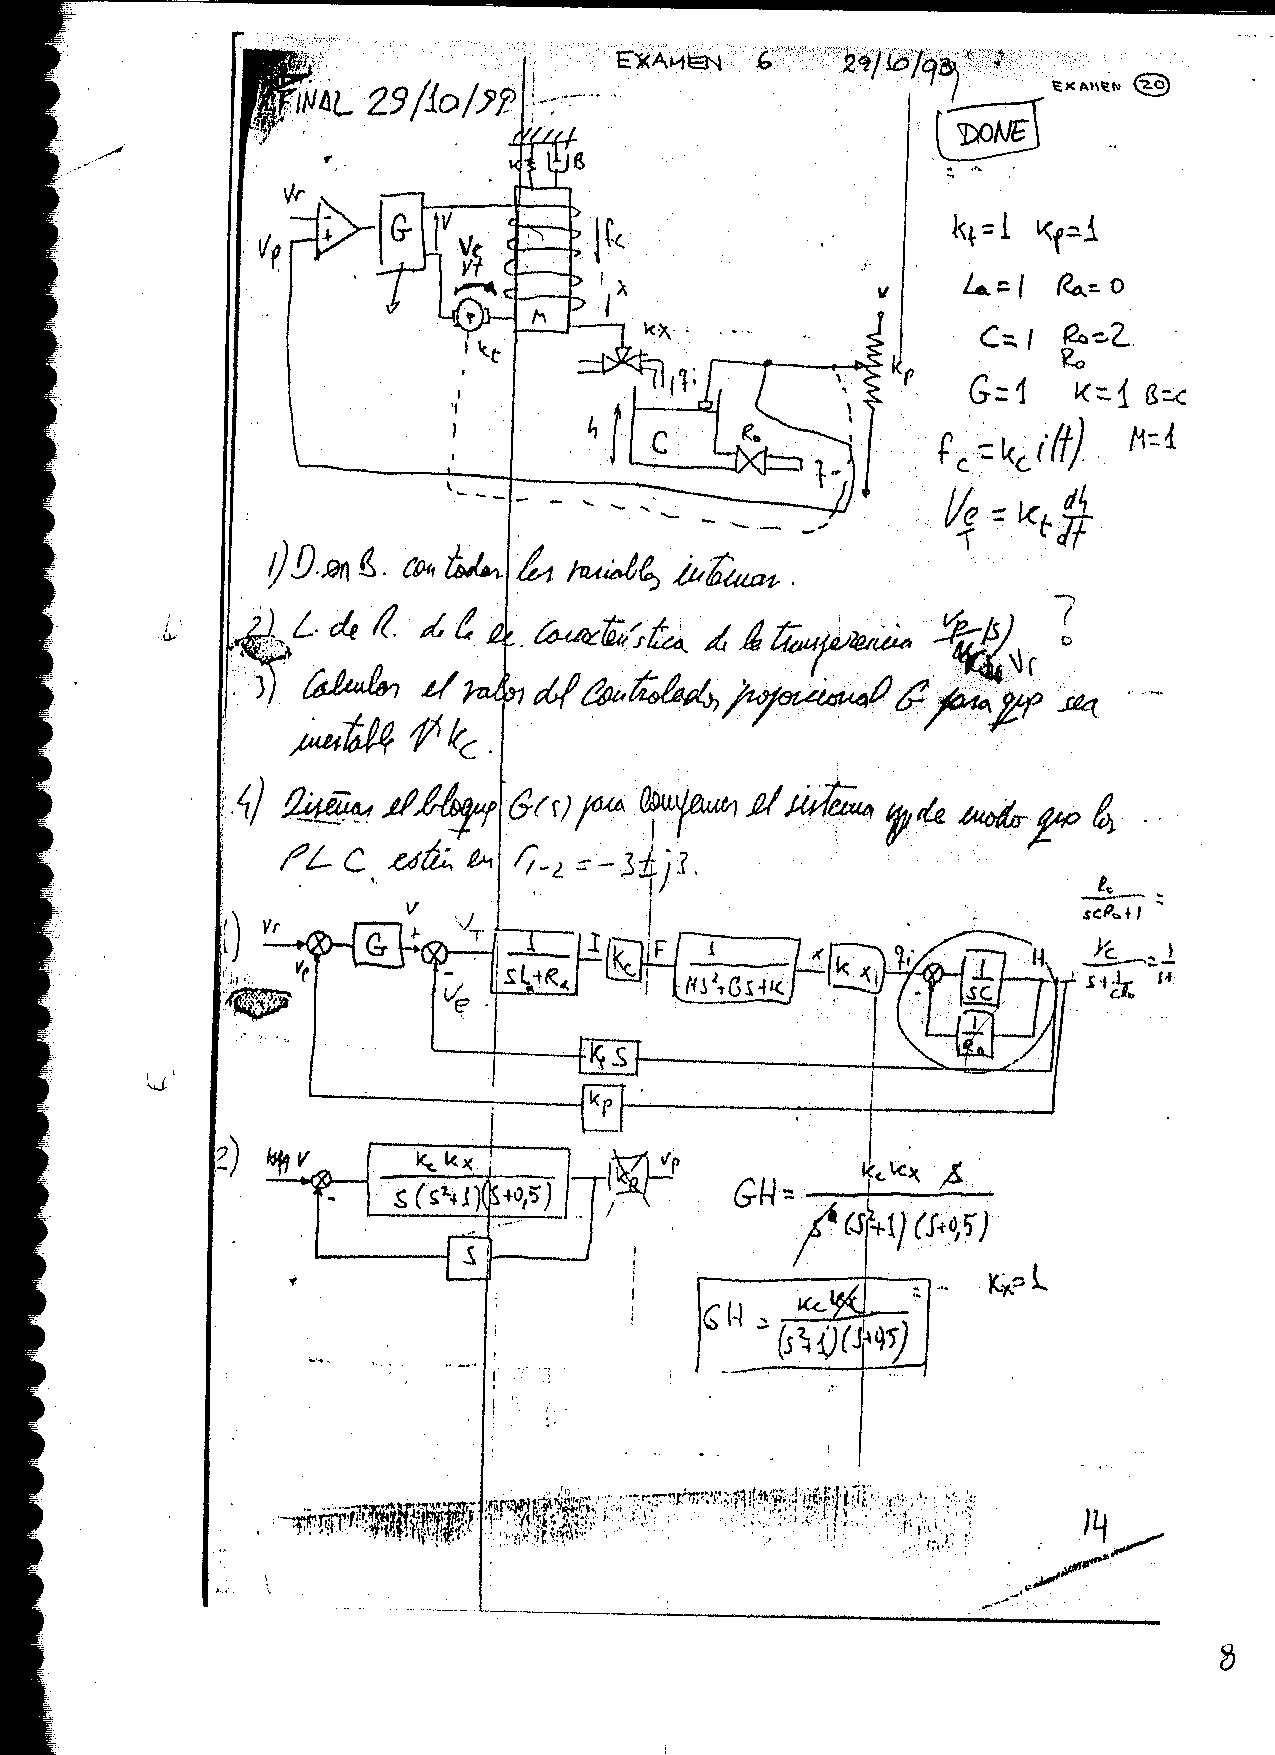 EXAMEN 6 29/10/93
EXAMEN 20
FINAL 29/10/99
DONE
K B
Vr
Vp
G
V
Ve
VT
fc
x
M
kt
kx
qi
kp
h
C
Ro
q
kt=1 Kp=1
La=1 Ra=0
C=1 Ro=2
Ro
G=1 K=1 B=c
fc=kc i(t) M=1
Ve = Kt dh/dt
T
1) D. en B. con todas las variables internas.
2) L. de R. de la ec. Característica de la transferencia Vp/Vr (s) ?
3) Calcular el valor del Controlador proporcional G para que sea
inestable ∀ kc.
4) Diseñar el bloque G(s) para compensar el sistema de modo que los
PLC estén en r1-2 = -3±j3.
Ro/(SCRo+1) =
1) Vr G V + VT 1/(SLa+Ra) I Kc F 1/(MS²+BS+K) X Kx qi 1/SC H
(1/C)/(S+1/(CRo)) = 1/S+
Vp - Ve - 1/Ro
Kt S
kp
2) V kc kx/(S(S²+1)(S+0,5)) kp Vp
- S
GH = kc kx S/(S(S²+1)(S+0,5))
Kx=1
GH = kc kx/((S²+1)(S+0,5)) =
14
8